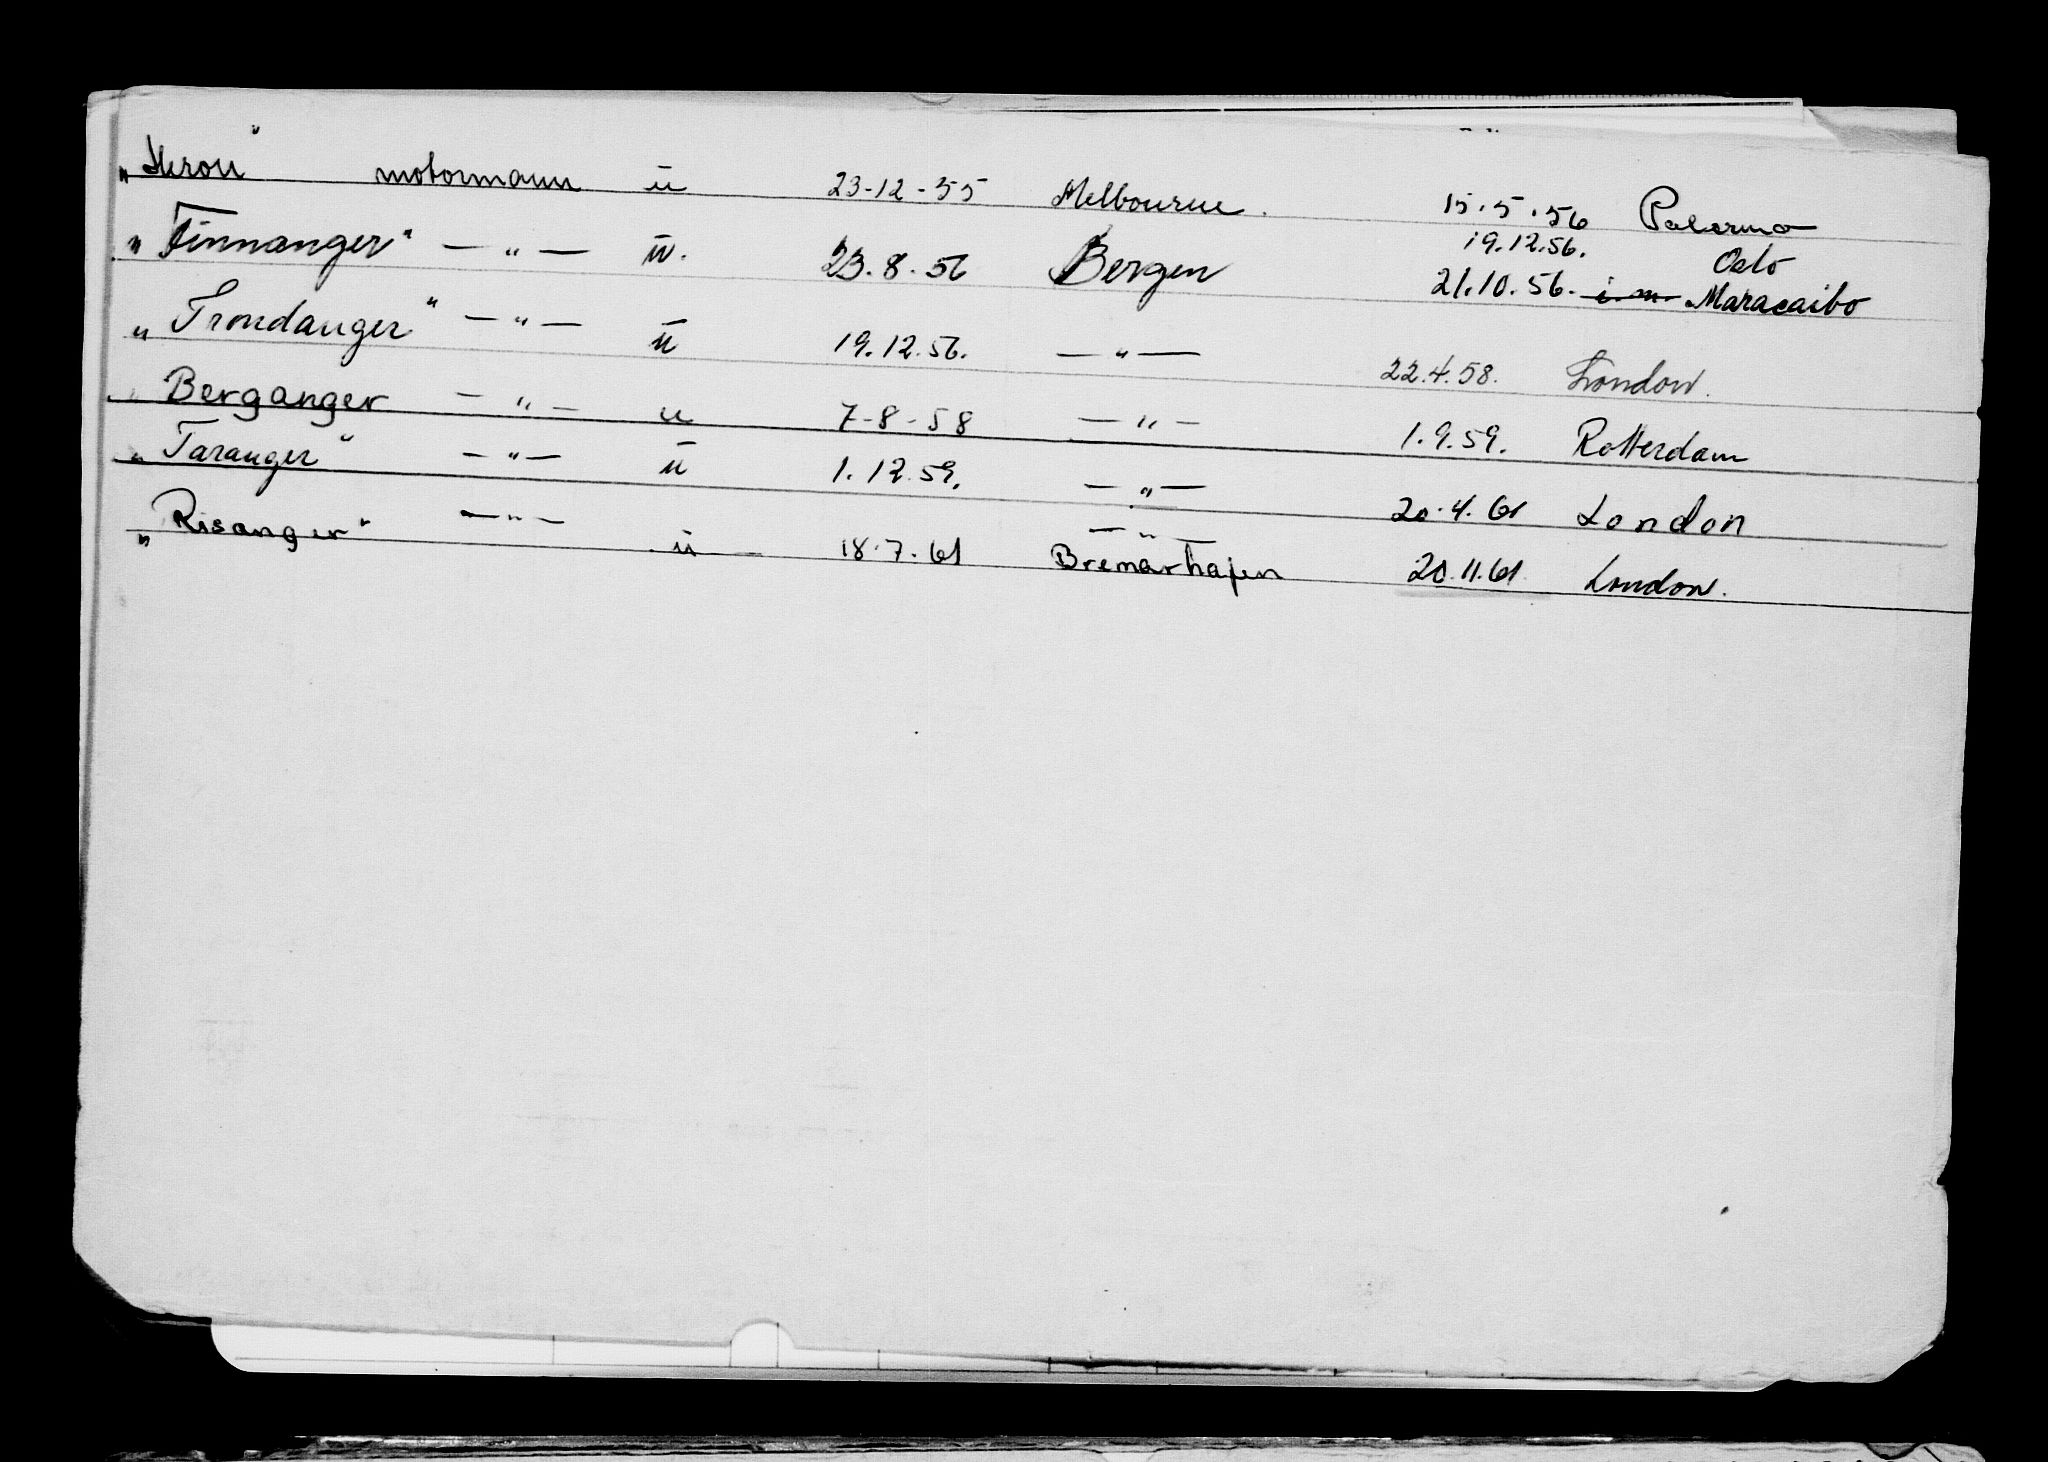 "Heron" motormann u 23-12-55 Melbourne. 15.5.56 Palermo
"Finnanger" — " — u. 23.8.56 Bergen 19.12.56. Oslo
21.10.56. i. m. Maracaibo
"Trondanger" — " — u 19.12.56. — " — 22.4.58. London.
Berganger — " — u 7-8-58 — " — 1.9.59. Rotterdam
"Taranger" — " — u 1.12.59. — " — 20.4.61 London
"Risanger" — " — u — 18.7.61 — " — Bremärhafen 20.11.61. London.